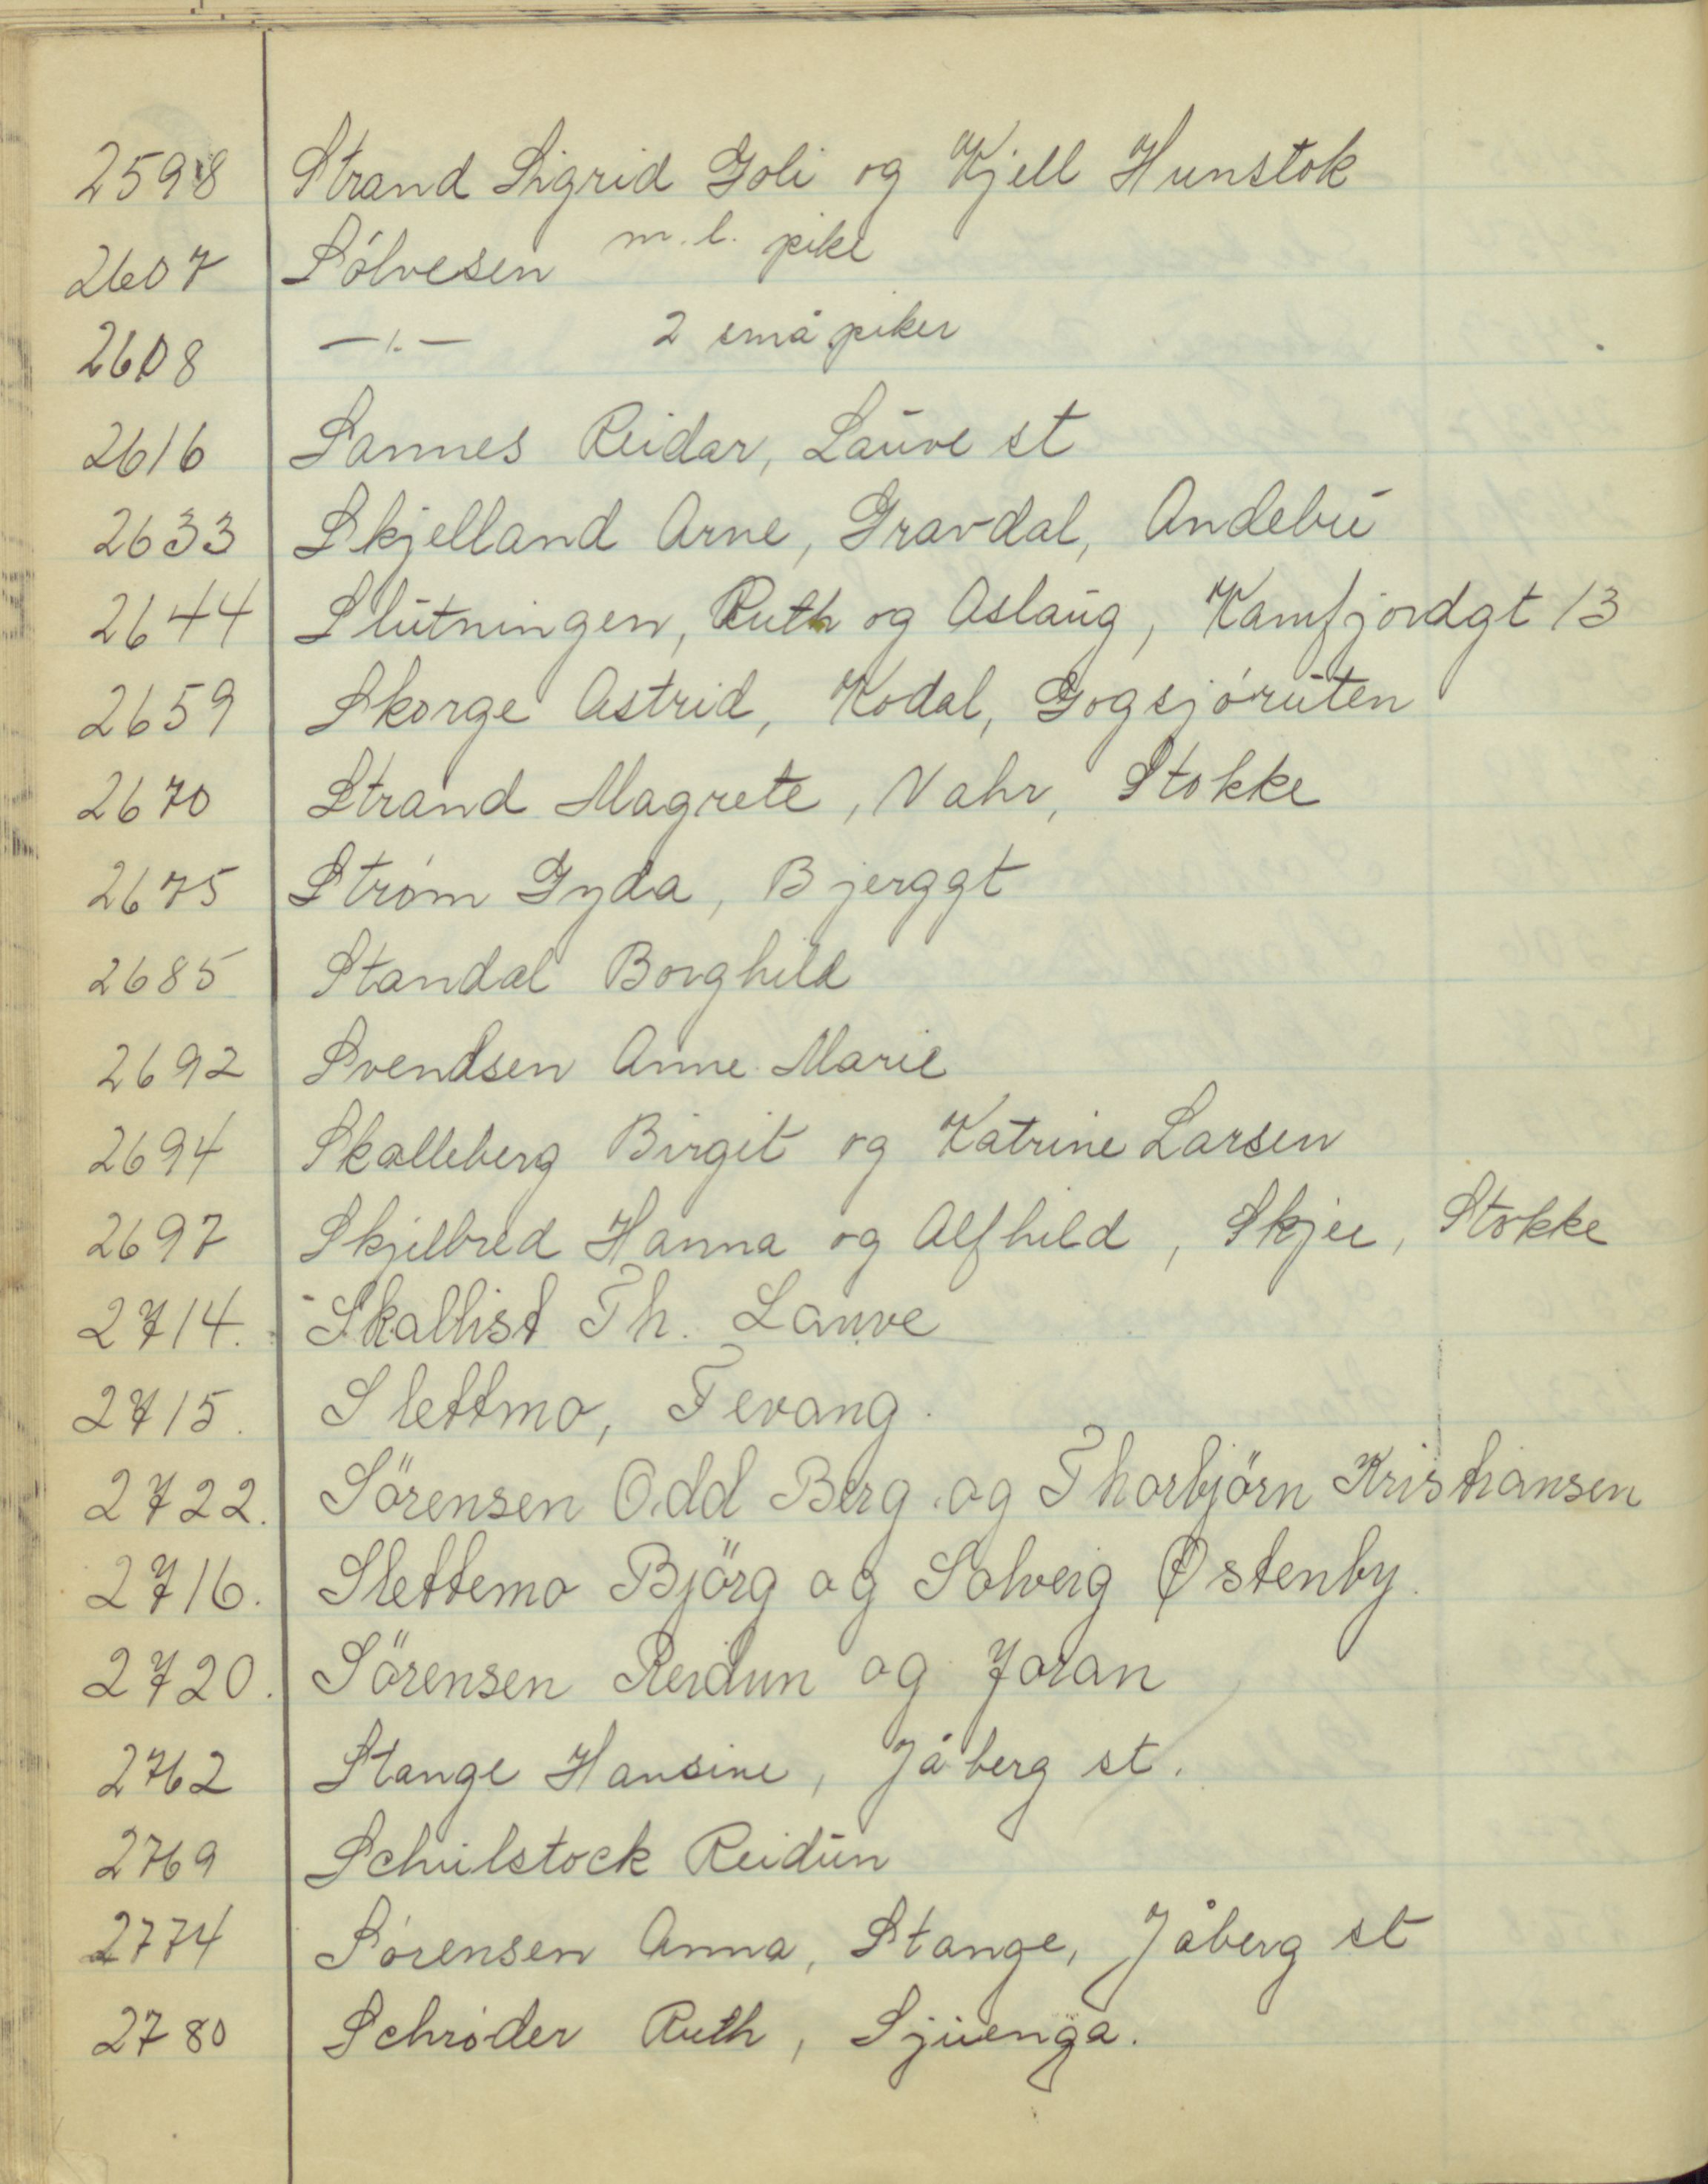 2598 Strand Sigrid Goli og Kjell Hunstok
2607 Sólvesen m. l. pike
2608 —〃— 2 små piker
2616 Sannes Reidar, Lauve st
2633 Skjelland Arne, Gravdal, Andebu
2644 Slutningen, Ruth og Aslaug, Kamfjordgt 13
2659 Skorge Astrid, Kodal, Gogsjóruten
2670 Strand Magrete, Vahr, Stokke
2675 Stróm Gyda, Bjerggt
2685 Standal Borghild
2692 Svendsen Anne Marie
2694 Skalleberg Birgit og Katrine Larsen
2697 Skjelbred Hanna og Alfhild, Skjee, Stokke
2714. Skallist Th. Lauve
2715. Slettmo, Tevang.
2722. Sörensen Odd Berg og Thorbjörn Kristiansen
2716. Slettemo Björg og Solveig Østenby.
2720. Sörensen Reidun og Joran
2762 Stange Hansine, Jåberg st.
2769 Schulstock Reidun
2774 Sórensen Anna, Stange, Jåberg st
2780 Schróder Ruth, Sjuenga.